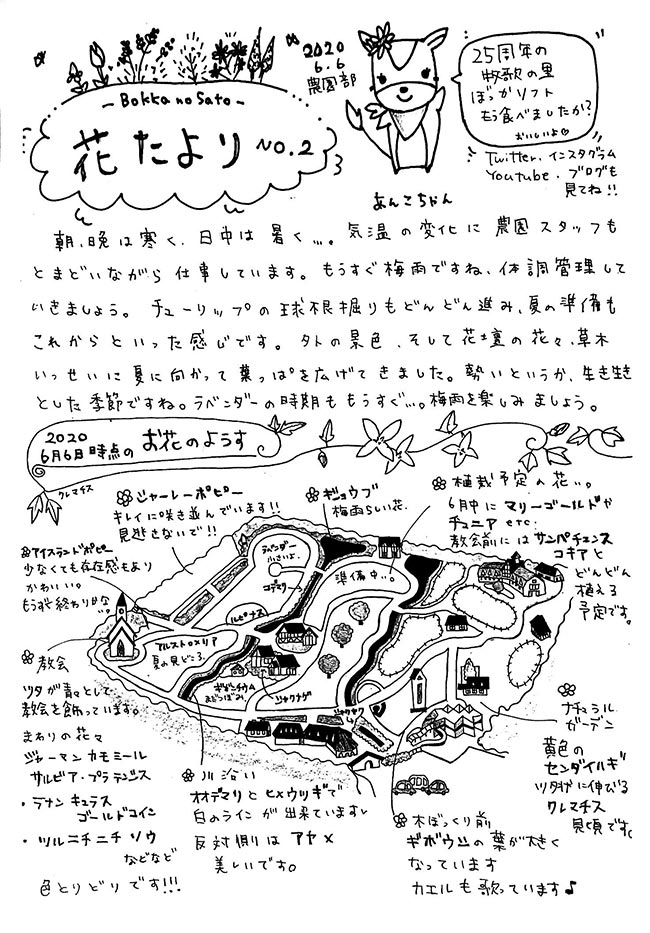 - Bokka no Sato -
花たより NO.2
2020
6.6
農園部
25周年の
牧歌の里
ぼっかソフト
もう食べましたか?
おいしいよ♡
Twitter、インスタグラム
Youtube、ブログも
見てね!!
あんこちゃん
朝、晩は寒く、日中は暑く…。気温の変化に農園スタッフも
とまどいながら仕事しています。もうすぐ梅雨ですね、体調管理して
いきましょう。チューリップの球根掘りもどんどん進み、夏の準備も
これからといった感じです。外の景色、そして花壇の花々、草木
いっせいに夏に向かって葉っぱを広げてきました。勢いというか、生き生き
とした季節ですね。ラベンダーの時期ももうすぐ…。梅雨を楽しみましょう。
2020
6月6日時点の お花のようす
クレマチス
シャーレーポピー
キレイに咲き並んでいます!!
見逃さないで!!
ギョウブ
梅雨らしい花。
植栽予定の花…。
6月中にマリーゴールドや
チュニア etc.
教会前にはサンパチェンス
コキアと
どんどん
植える
予定です。
アイスランドポピー
少なくても存在感もあり
かわいい。
もうすぐ終わりかな…。
ラベンダー
小さいよ…
コデマリ
準備中…。
ルピナス
アルストロメリア
夏の見どころ
ギボシ
シャクナゲ
教会
ツタが青々として
教会を飾っています。
まわりの花々
ジャーマンカモミール
サルビア・プラテンシス
・ラナンキュラス
ゴールドコイン
・ツルニチニチソウ
などなど
色とりどりです!!!
川沿い
オオデマリとヒメウツギで
白のラインが出来ています
反対側はアヤメ
美しいです。
木ぼっくり前
ギボウシの葉が大きく
なっています
カエルも歌っています♪
ナチュラル
ガーデン
黄色の
センダイハギ
ツタがに伸びる
クレマチス
見頃です。